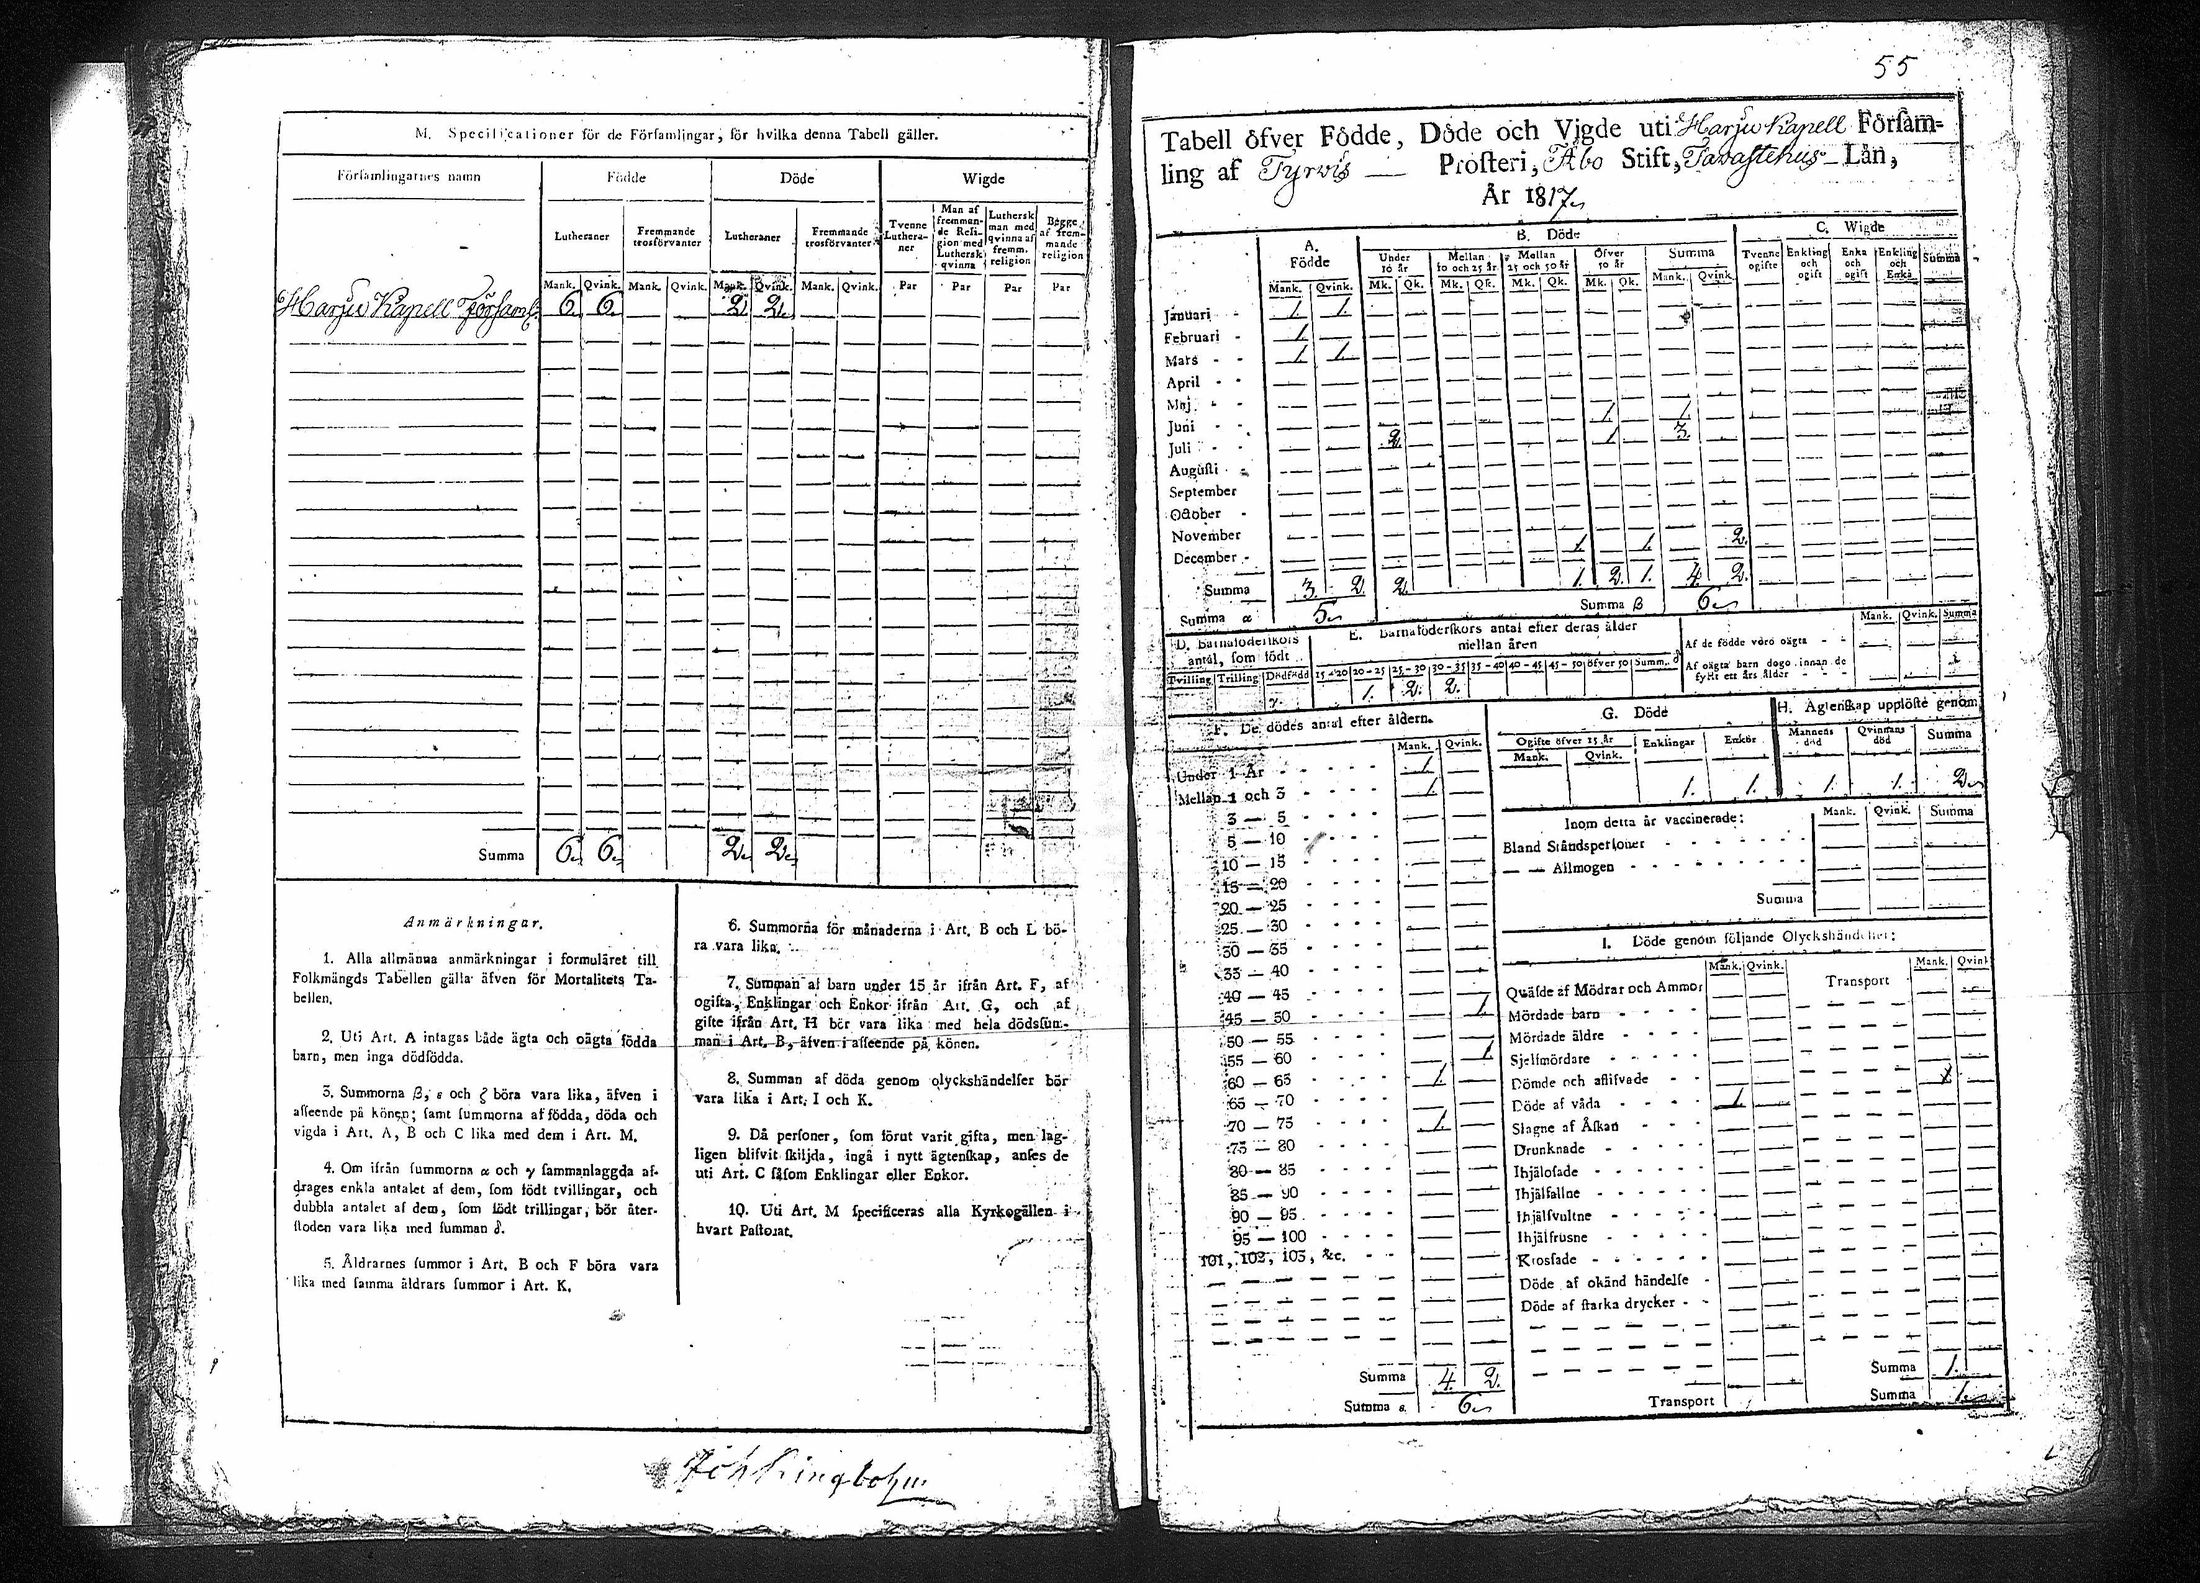 M. Specificationer för de Församlingar, för hvilka denna Tabell gäller.
Församlingarnes namn Födde Döde Wigde
Lutheraner Fremmande trosförvanter Lutheraner Fremmande trosförvanter Tvenne Lutheraner Man af fremmande Religion med Luthersk qvinna Luthersk man med qvinna af fremm. religion Begge af fremmande religion
Mank. Qvink. Mank. Qvink. Mank. Qvink. Mank. Qvink. Par Par Par Par
Harju Kapell Församl: 6. 6. — — 2. 2.
Summa 6. 6. 2. 2.
Anmärkningar.
1. Alla allmänna anmärkningar i formuläret till
Folkmängds Tabellen gälla äfven för Mortalitets Ta-
bellen.
2. Uti Art. A intagas både ägta och oägta födda
barn, men inga dödfödda.
3. Summorna β, ε och ζ böra vara lika, äfven i
afseende på könen; samt summorna af födda, döda och
vigda i Art. A, B och C lika med dem i Art. M.
4. Om ifrån summorna α och γ sammanlaggda af-
drages enkla antalet af dem, som födt tvillingar, och
dubbla antalet af dem, som födt trillingar, bör åter-
stoden vara lika med summan δ.
5. Åldrarnes summor i Art. B och F böra vara
lika med samma åldrars summor i Art. K.
6. Summorna för månaderna i Art. B och L bö-
ra vara lika.
7. Summan af barn under 15 år ifrån Art. F, af
ogifta, Enklingar och Enkor ifrån Art. G, och af
gifte ifrån Art. H bör vara lika med hela dödssum-
man i Art. B, äfven i afseende på könen.
8. Summan af döda genom olyckshändelser bör
vara lika i Art. I och K.
9. Då personer, som förut varit gifta, men lag-
ligen blifvit skiljda, ingå i nytt ägtenskap, anses de
uti Art. C såsom Enklingar eller Enkor.
10. Uti Art. M specificeras alla Kyrkogällen i
hvart Pastorat.
55
Tabell öfver Födde, Döde och Vigde uti Harju Kapell Försam-
ling af Tyrvis — Prosteri, Åbo Stift, Tavastehus Län,
År 1817
A. Födde B. Döde C. Wigde
Under 10 år Mellan 10 och 25 år Mellan 25 och 50 år Öfver 50 år Summa Tvenne ogifte Enkling och ogift Enka och ogift Enkling och Enka Summa
Mank. Qvink. Mk. Qk. Mk. Qk. Mk. Qk. Mk. Qk. Mank. Qvink.
Januari 1. 1.
Februari 1.
Mars 1. 1.
April
Maj
Juni 1. 1.
Juli 2. 1. 3.
Augusti
September
October
November
December 1. 1. 2.
Summa 3. 2. 2. 1. 2. 1. 4. 2.
Summa α 5 Summa β 6
D. Barnaföderskors antal, som födt
Tvilling Trilling Dödfödd
γ.
E. Barnaföderskors antal efter deras ålder mellan åren
15-20 20-25 25-30 30-35 35-40 40-45 45-50 öfver 50 Summ. δ
1. 2. 2.
Mank. Qvink. Summa
Af de födde voro oägta
Af oägta barn dogo innan de
fyllt ett års ålder
F. De dödes antal efter åldern.
Mank. Qvink.
Under 1 År 1.
Mellan 1 och 3 1.
3 — 5
5 — 10
10 — 15
15 — 20
20 — 25
25 — 30
30 — 35
35 — 40
40 — 45
45 — 50 1.
50 — 55
55 — 60 1.
60 — 65 1.
65 — 70
70 — 75 1.
75 — 80
80 — 85
85 — 90
90 — 95
95 — 100
101, 102, 103, &c.
Summa 4. 2.
Summa ε. 6
G. Döde
Ogifte öfver 15 år Enklingar Enkor
Mank. Qvink.
1. 1.
H. Ägtenskap upplöste genom
Mannens död Qvinnans död Summa
1. 1. 2
Inom detta år vaccinerade: Mank. Qvink. Summa
Bland Ståndspersoner
— — Allmogen
Summa
I. Döde genom följande Olyckshändelser:
Mank. Qvink. Transport Mank. Qvink.
Qväfde af Mödrar och Ammor
Mördade barn
Mördade äldre
Sjelfmördare
Dömde och aflifvade
Döde af våda 1.
Slagne af Åskan
Drunknade
Ihjälosade
Ihjälfallne
Ihjälsvultne
Ihjälfrusne
Krossade
Döde af okänd händelse
Döde af starka drycker
Summa 1.
Transport Summa 1.